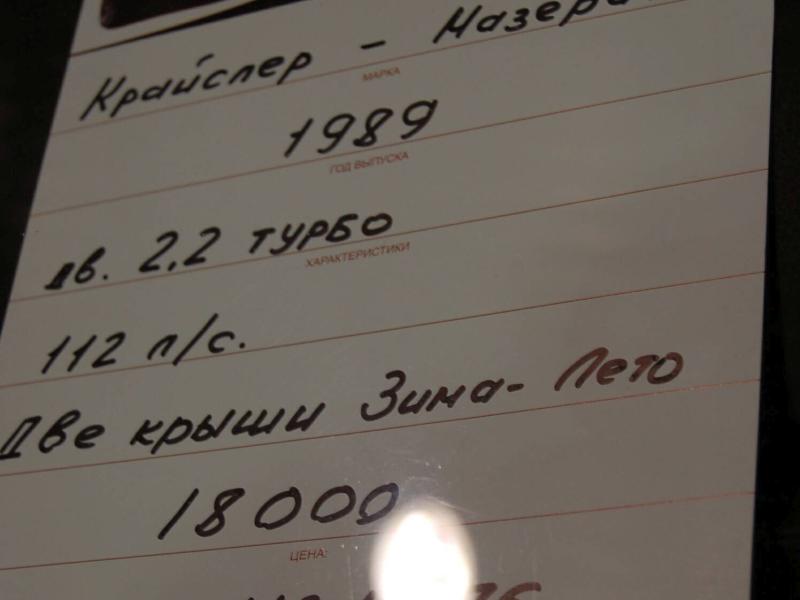 Крайслер - Мазера
МАРКА
1989
ГОД ВЫПУСКА
дв. 2,2 турбо
ХАРАКТЕРИСТИКИ
112 л/с.
Две крыши Зима- Лето
18000
ЦЕНА: